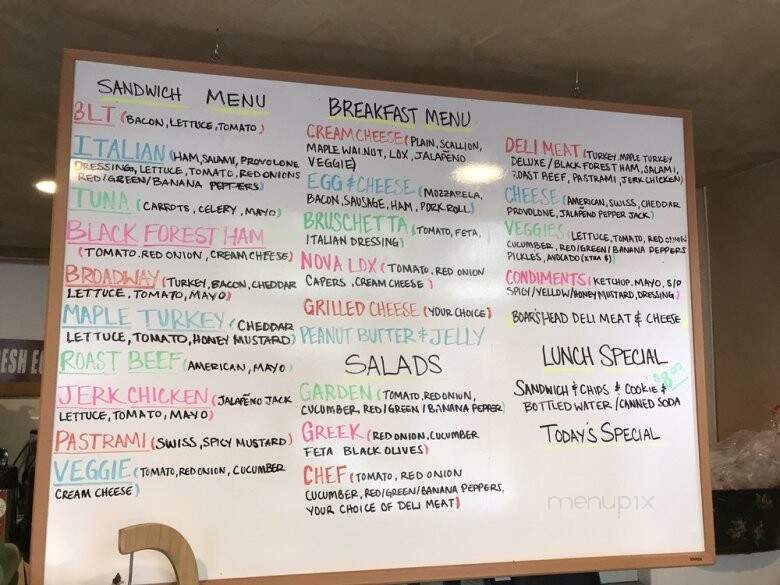 SANDWICH MENU
BLT (BACON, LETTUCE, TOMATO)
ITALIAN (HAM, SALAMI, PROVOLONE
DRESSING, LETTUCE, TOMATO, RED ONIONS
RED/GREEN/BANANA PEPPERS)
TUNA (CARROTS, CELERY, MAYO)
BLACK FOREST HAM
(TOMATO. RED ONION, CREAM CHEESE)
BROADWAY (TURKEY, BACON, CHEDDAR
LETTUCE, TOMATO, MAYO)
MAPLE TURKEY (CHEDDAR
LETTUCE, TOMATO, HONEY MUSTARD)
ROAST BEEF (AMERICAN, MAYO)
JERK CHICKEN (JALAPEÑO JACK
LETTUCE, TOMATO, MAYO)
PASTRAMI (SWISS, SPICY MUSTARD)
VEGGIE (TOMATO, RED ONION, CUCUMBER
CREAM CHEESE)
BREAKFAST MENU
CREAM CHEESE (PLAIN, SCALLION,
MAPLE WALNUT, LOX, JALAPEÑO
VEGGIE)
EGG & CHEESE (MOZZARELA,
BACON, SAUSAGE, HAM, PORK ROLL)
BRUSCHETTA (TOMATO, FETA,
ITALIAN DRESSING)
NOVA LOX (TOMATO. RED ONION
CAPERS, CREAM CHEESE)
GRILLED CHEESE (YOUR CHOICE)
PEANUT BUTTER & JELLY
SALADS
GARDEN (TOMATO, RED ONION,
CUCUMBER, RED/GREEN/BANANA PEPPER)
GREEK (RED ONION. CUCUMBER
FETA BLACK OLIVES)
CHEF (TOMATO, RED ONION
CUCUMBER, RED/GREEN/BANANA PEPPERS,
YOUR CHOICE OF DELI MEAT)
DELI MEAT (TURKEY, MAPLE TURKEY
DELUXE/BLACK FOREST HAM, SALAMI,
ROAST BEEF, PASTRAMI, JERK CHICKEN)
CHEESE (AMERICAN, SWISS, CHEDDAR
PROVOLONE, JALAPENO PEPPER JACK)
VEGGIES (LETTUCE, TOMATO, RED ONION
CUCUMBER, RED/GREEN/BANANA PEPPERS
PICKLES, AVOCADO (XTRA $))
CONDIMENTS (KETCHUP. MAYO, S/P
SPICY/YELLOW/HONEY MUSTARD, DRESSING)
BOARSHEAD DELI MEAT & CHEESE
LUNCH SPECIAL
SANDWICH & CHIPS & COOKIE &
BOTTLED WATER/CANNED SODA
TODAY'S SPECIAL
menupix